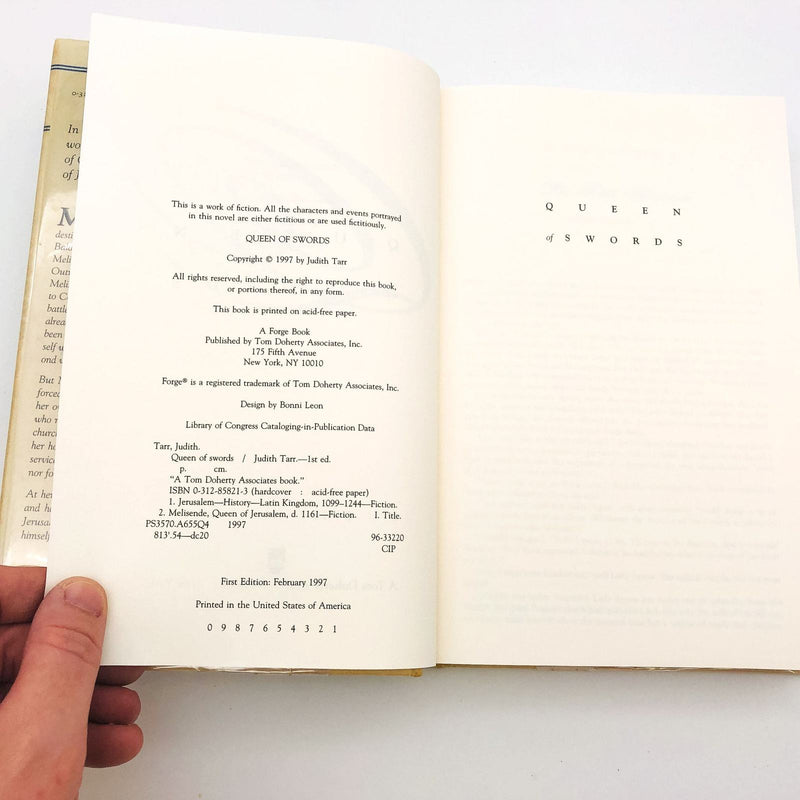 0-3
In
wo
of
of J
M
desti
Bal
Meli
Outr
Meli
to C
battl
alrea
been
self u
ond w
But
forced
her o
who r
church
her ho
servic
nor fo
At her
and hi
Jerusa
himsel
This is a work of fiction. All the characters and events portrayed
in this novel are either fictitious or are used fictitiously.
QUEEN OF SWORDS
Copyright © 1997 by Judith Tarr
All rights reserved, including the right to reproduce this book,
or portions thereof, in any form.
This book is printed on acid-free paper.
A Forge Book
Published by Tom Doherty Associates, Inc.
175 Fifth Avenue
New York, NY 10010
Forge® is a registered trademark of Tom Doherty Associates, Inc.
Design by Bonni Leon
Library of Congress Cataloging-in-Publication Data
Tarr, Judith.
Queen of swords / Judith Tarr.—1st ed.
p. cm.
"A Tom Doherty Associates book."
ISBN 0-312-85821-3 (hardcover : acid-free paper)
1. Jerusalem—History—Latin Kingdom, 1099–1244—Fiction.
2. Melisende, Queen of Jerusalem, d. 1161—Fiction. I. Title.
PS3570.A655Q4 1997
813'.54—dc20 96-33220
CIP
First Edition: February 1997
Printed in the United States of America
0 9 8 7 6 5 4 3 2 1
QUEEN
of SWORDS